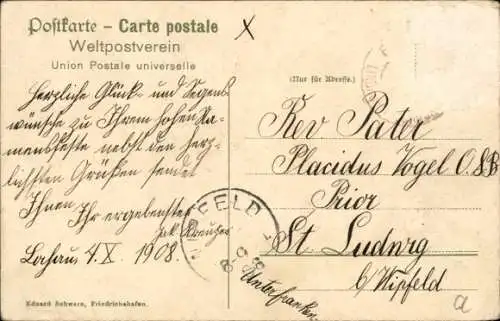 Postkarte – Carte postale
Weltpostverein
Union Postale universelle
(Nur für Adresse.)
Herzliche Glück- und Segens
wünsche zu Ihrem hohen Na-
mensfeste nebst den herz-
lichsten Grüßen sendet
Ihnen
Ihr ergebenster
Kreuzer
Lochau 4.X. 1908.
Rev Pater
Placidus Vogel O.S.B
Prior
St Ludwig
b/Wipfeld
Unterfranken
PFELD
a
Eduard Schwarz, Friedrichshafen.